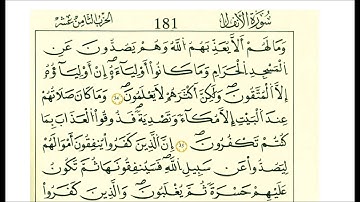 سُورَةُ الْأَنفَالِ 181 الحِزْبُ الثَّامِنَ عَشَرَ
وَمَا لَهُمْ أَلَّا يُعَذِّبَهُمُ اللَّهُ وَهُمْ يَصُدُّونَ عَنِ
الْمَسْجِدِ الْحَرَامِ وَمَا كَانُوا أَوْلِيَاءَهُ إِنْ أَوْلِيَاؤُهُ
إِلَّا الْمُتَّقُونَ وَلَٰكِنَّ أَكْثَرَهُمْ لَا يَعْلَمُونَ وَمَا كَانَ صَلَاتُهُمْ
عِندَ الْبَيْتِ إِلَّا مُكَاءً وَتَصْدِيَةً فَذُوقُوا الْعَذَابَ بِمَا
كُنتُمْ تَكْفُرُونَ إِنَّ الَّذِينَ كَفَرُوا يُنفِقُونَ أَمْوَالَهُمْ
لِيَصُدُّوا عَن سَبِيلِ اللَّهِ فَسَيُنفِقُونَهَا ثُمَّ تَكُونُ
عَلَيْهِمْ حَسْرَةً ثُمَّ يُغْلَبُونَ وَالَّذِينَ كَفَرُوا